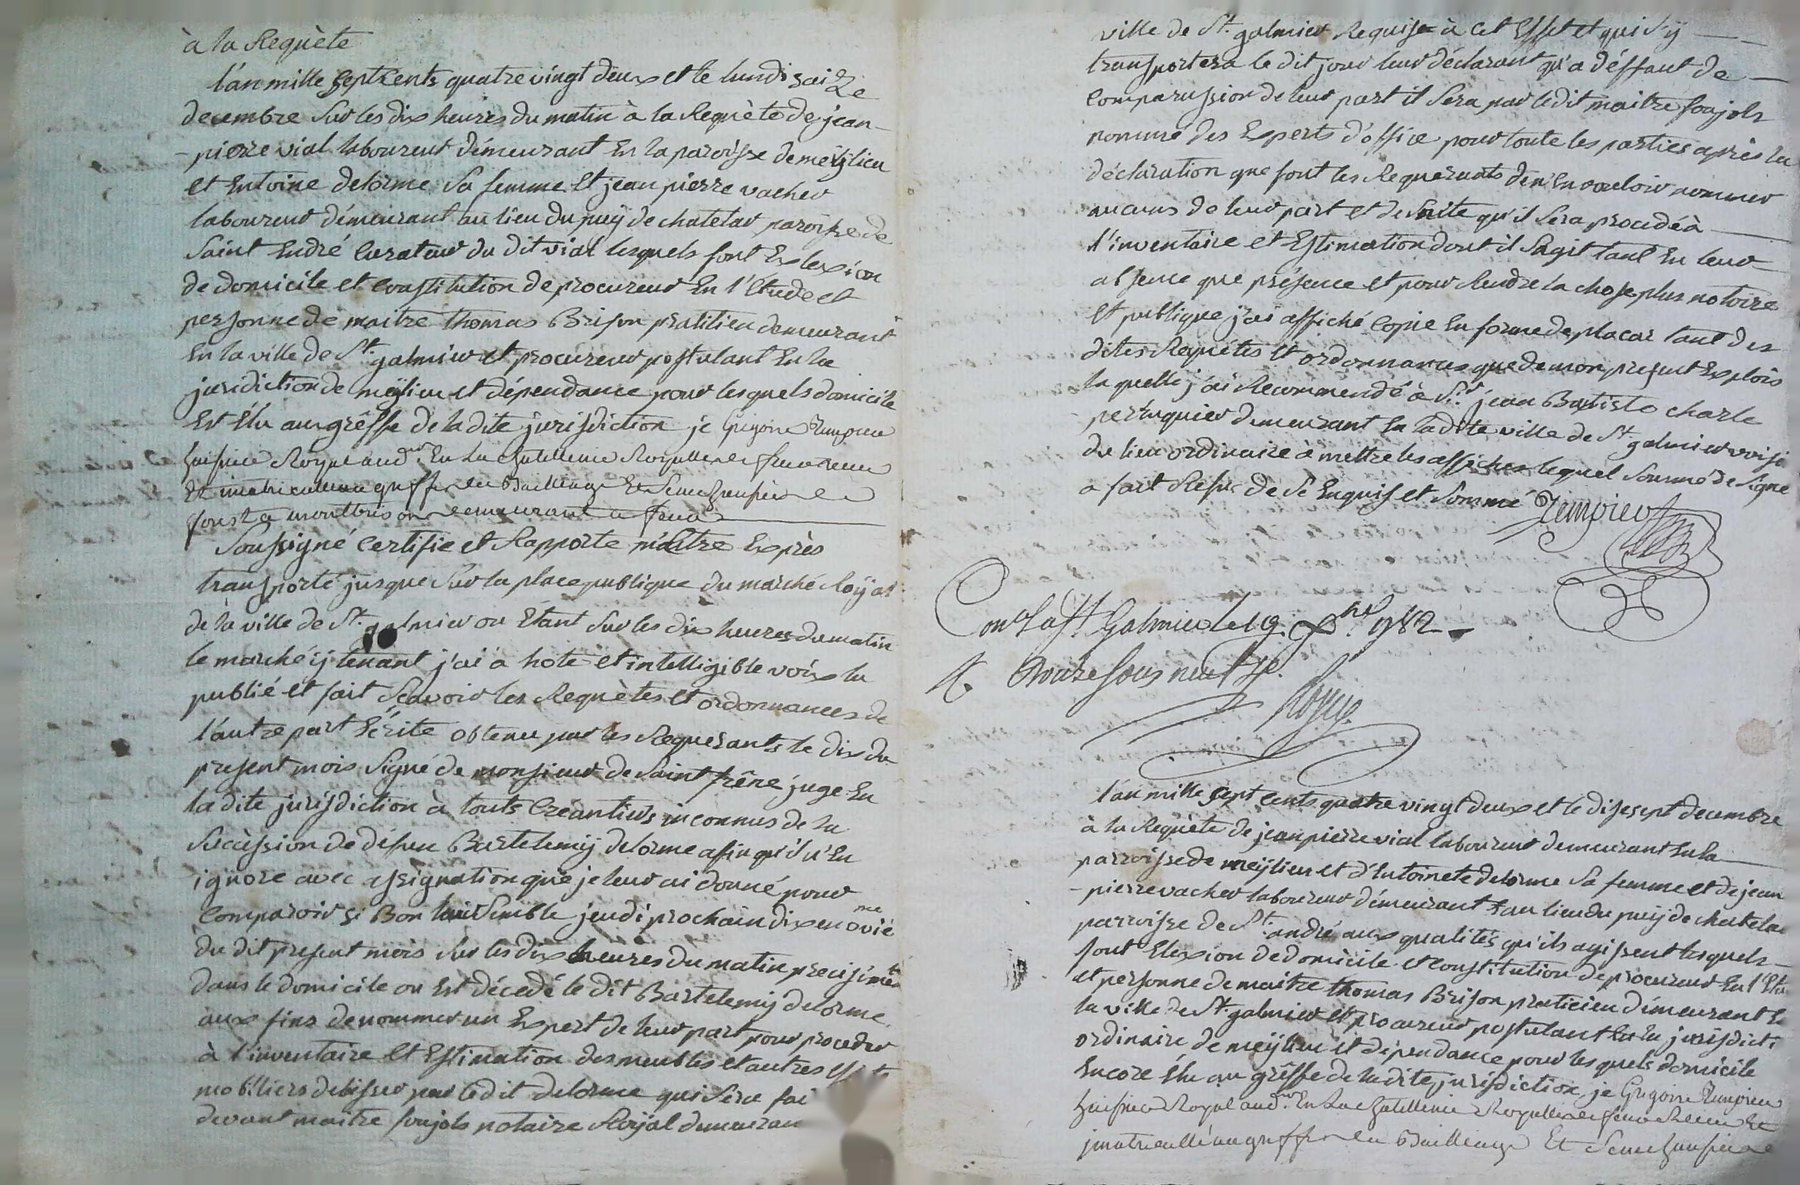 à la Requète
l'an mille septcents quatre vingt deux et le lundi saize
decembre sur les dix heures du matin à la Requète de jean
pierre vial laboureur démeurant En la paroisse de meÿlieu
et Entoine delorme sa femme Et jean pierre vacher
laboureur démeurant au lieu du puÿ de chatelar paroisse de
saint André Curateur du dit vial lesquels font Exlexion
de domicile et Constitution de procureur En l'Etude et
personne de maitre thomas Brison pratitien demeurant
En la ville de St. galmier et procureur postulant En la
juridiction de meÿlieu et dépendance pour lesquels domicile
Est Elu au grèffe de la dite jurisdiction je Grigoire Tempier
huissier Royal aud. En La Chatellenie Royalle de
Et immatriculé au greffe du Bailliage Et Senechaussée de
forest a montbrison demeurant a
soussigné Certifie et Rapporte m'Etre Exprès
transporté jusques sur la place publique du marché Roÿal
de la ville de St. galmier ou Etant sur les dix heures du matin
le marché ÿ tenant j'ai a hote et intelligible voix lu
publié et fait scavoir les Requètes et ordonnances de
l'autre part Ecrite obtenu par les Requerants le dix du
present mois signé de monsieur de saint frêne juge En
la dite jurisdiction à touts Creantiers inconnus de la
succèssion de defeu Bartelemÿ delorme affin qu'il n'En
ignore avec assignation que je leur ai donné pour
Comparoir si Bon leur semble jeudi prochain dix neuvie me
du dit present mois sur les dix heures du matin precisiment
dans le domicile ou Est décedé le dit Bartelemÿ delorme
aux fins de nommer un Expert de leur part pour proceder
à l'inventaire Et Estimation des meubles et autres Effets
mobiliers delaisser par le dit delorme qui sera fai
devant maitre foujols notaire Roÿal demeuran
ville de St. galmier Requise à Cet Effet et qui s'ÿ
transportera le dit jour leur déclarant qu'a déffaut de
Comparussion de leur part il sera par le dit maitre foujols
nommé des Experts d'office pour toute les parties après la
déclaration que font les Requerants de n'En vouloir nommer
aucuns de leur part et de suite qu'il sera procedé à
l'inventaire et Estimation dont il s'agit tant En leur
absence que présence et pour Rendre la chose plus notoire
Et publique j'ai affiché Copie En forme de placar tant des
dites Requètes Et ordonnances que de mon present Explois
la quelle j'ai Recommendé à Sr. jean Batiste charle
perruquier demeurant En la dite ville de St galmier voisi
du lieu ordinaire à mettre les affiches lequel sommé de signe
a fait Refus de ce Enquis et sommé Tempier
Con. a St. Galmier le 19 Xbre 1782
R douze sous neuf d.
l'an mille sept cents quatre vingt deux et le dixsept decembre
à la Requète de jean pierre vial laboureur demeurant En la
parroisse de meÿlieu et d'Entoinete delorme sa femme et de jean
pierre vacher laboureur démeurant au lieu du puÿ de chatela
parroisse de St. andré aux qualités qu'ils agissent lesquels
font Elexion de domicile et Constitution de procureur En l'Etu
et personne de maitre thomas Brison praticien démeurant E
la ville de St. galmier et procureur postulant En la jurisdicti
ordinaire de meÿlieu et dépendance pour lesquels domicile
Encore Elu au grèffe de la dite jurisdiction, je Grigoire Tempier
huissier Royal aud. En La Chatellenie Royalle de Et
jmatriculé au greffe du Bailliage Et Senechaussée de